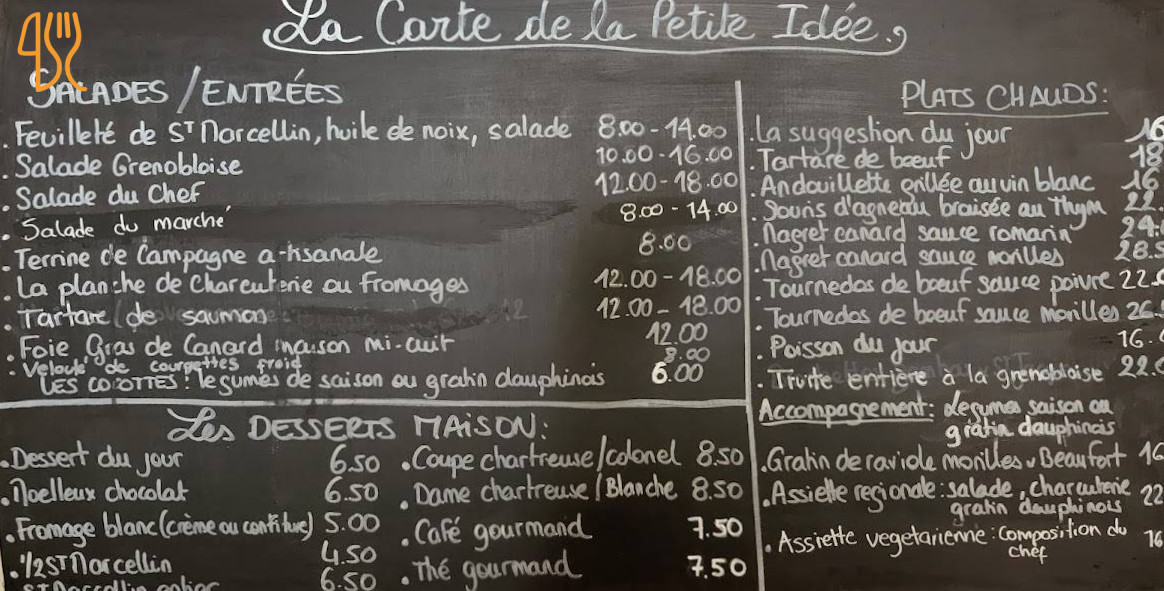 La Carte de la Petite Idée.
SALADES / ENTRÉES
. Feuilleté de ST Marcellin, huile de noix, salade 8.00 - 14.00
. Salade Grenobloise 10.00 - 16.00
. Salade du Chef 12.00 - 18.00
. Salade du marché 8.00 - 14.00
. Terrine de Campagne artisanale 8.00
. La planche de Charcuterie ou Fromages 12.00 - 18.00
. Tartare de saumon 12.00 - 18.00
. Foie Gras de Canard maison mi-cuit 12.00
. Velouté de courgettes froid 8.00
LES COCOTTES : legumes de saison ou gratin dauphinois 6.00
Les DESSERTS MAISON:
. Dessert du jour 6.50
. Moelleux chocolat 6.50
. Fromage blanc (crème ou confiture) 5.00
. 1/2 ST Marcellin 4.50
ST Marcellin entier 6.50
. Coupe chartreuse / colonel 8.50
. Dame chartreuse / Blanche 8.50
. Café gourmand 7.50
. Thé gourmand 7.50
PLATS CHAUDS:
. La suggestion du jour 16
. Tartare de bœuf 18
. Andouillette grillée au vin blanc 16
. Souris d'agneau braisée au Thym 22.
. Magret canard sauce romarin 24.
. Magret canard sauce morilles 28.5
. Tournedos de bœuf sauce poivre 22.
. Tournedos de bœuf sauce morilles 26.
. Poisson du jour 16.
. Truite entière à la grenobloise 22.
Accompagnement: Legumes saison ou
gratin dauphinois
. Gratin de raviole morilles Beaufort 16
. Assiette regionale: salade, charcuterie 22
gratin dauphinois
. Assiette vegetarienne: composition du 16
chef